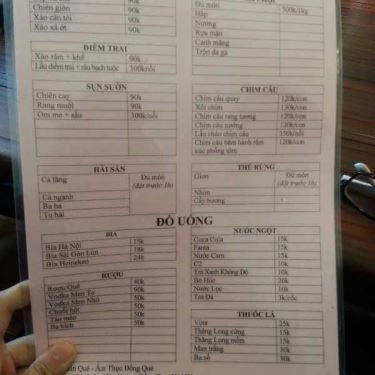 Chiên giòn 90k
Xào cần tỏi 90k
Xào xả ớt 90k
DIÊM TRAI
Xào răm + khế 90k
SỤN SƯỜN
Chiên cay 90k
Rang muối 90k
Om mẻ + sấu 300k/nồi
HẢI SẢN
Cá lăng Đủ món
(đặt trước 1h)
Cá ngạnh
Ba ba
Tu hài
Đủ món 500k/1kg
Hấp
Nướng
Rựa mận
Canh măng
Trộn da gà
CHIM CÂU
Chim câu quay 120k/con
Xôi chim 130k/con
Chim câu rang tương 120k/con
Chim câu nướng 120k/con
Lẩu cháo chim câu 150k/nồi
Chim câu băm hành răm 120k/con
xúc phồng tôm
THÚ RỪNG
Đủ món
(đặt trước 1h)
Nhím
Cầy hương
ĐỒ UỐNG
BIA
Bia Hà Nội 15k
Bia Sài Gòn Lùn 18k
Bia Heineken 24k
RƯỢU
Rượu Quê 40k
Vodka Men To 90k
Vodka Men Nhỏ 50k
Chuối hột 50k
Táo mèo 50k
Ba kích 50k
NƯỚC NGỌT
Coca Cola 15k
Fanta 15k
Nước Cam 15k
C2 10k
Trà Xanh Không Độ 10k
Bò Húc 20k
Nước Lọc 10k
Trà Đá 3k/cốc
THUỐC LÁ
Vina 25k
Thăng Long cứng 15k
Thăng Long mềm 15k
Man trắng 30k
Ba số 30k
Quê - Ẩm Thực Đồng Quê